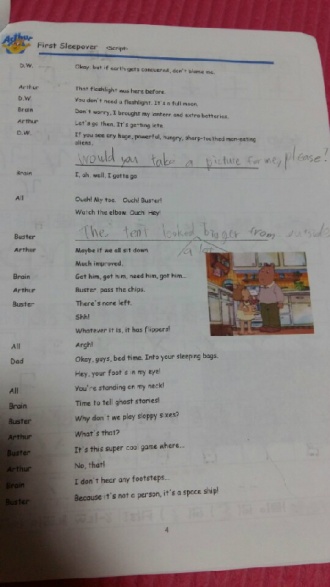 Arthur
First Sleepover Script
D.W. Okay, but if earth gets conquered, don't blame me.
Arthur That flashlight was here before.
D.W. You don't need a flashlight. It's a full moon.
Brain Don't worry, I brought my lantern and extra batteries.
Arthur Let's go then. It's getting late.
D.W. If you see any huge, powerful, hungry, sharp-toothed man-eating
aliens,
would you take a picture for me, please?
Brain I, uh, well, I gotta go.
All Ouch! My toe. Ouch! Buster!
Watch the elbow. Ouch! Hey!
Buster The tent looked bigger from outside
Arthur Maybe if we all sit down.
Much improved.
Brain Got him, got him, need him, got him...
Arthur Buster, pass the chips.
Buster There's none left.
Shh!
Whatever it is, it has flippers!
All Argh!
Dad Okay, guys, bed time. Into your sleeping bags.
Hey, your foot's in my eye!
All You're standing on my neck!
Brain Time to tell ghost stories!
Buster Why don't we play sloppy sixes?
Arthur What's that?
Buster It's this super cool game where...
Arthur No, that!
Brain I don't hear any footsteps...
Buster Because it's not a person, it's a space ship!
4